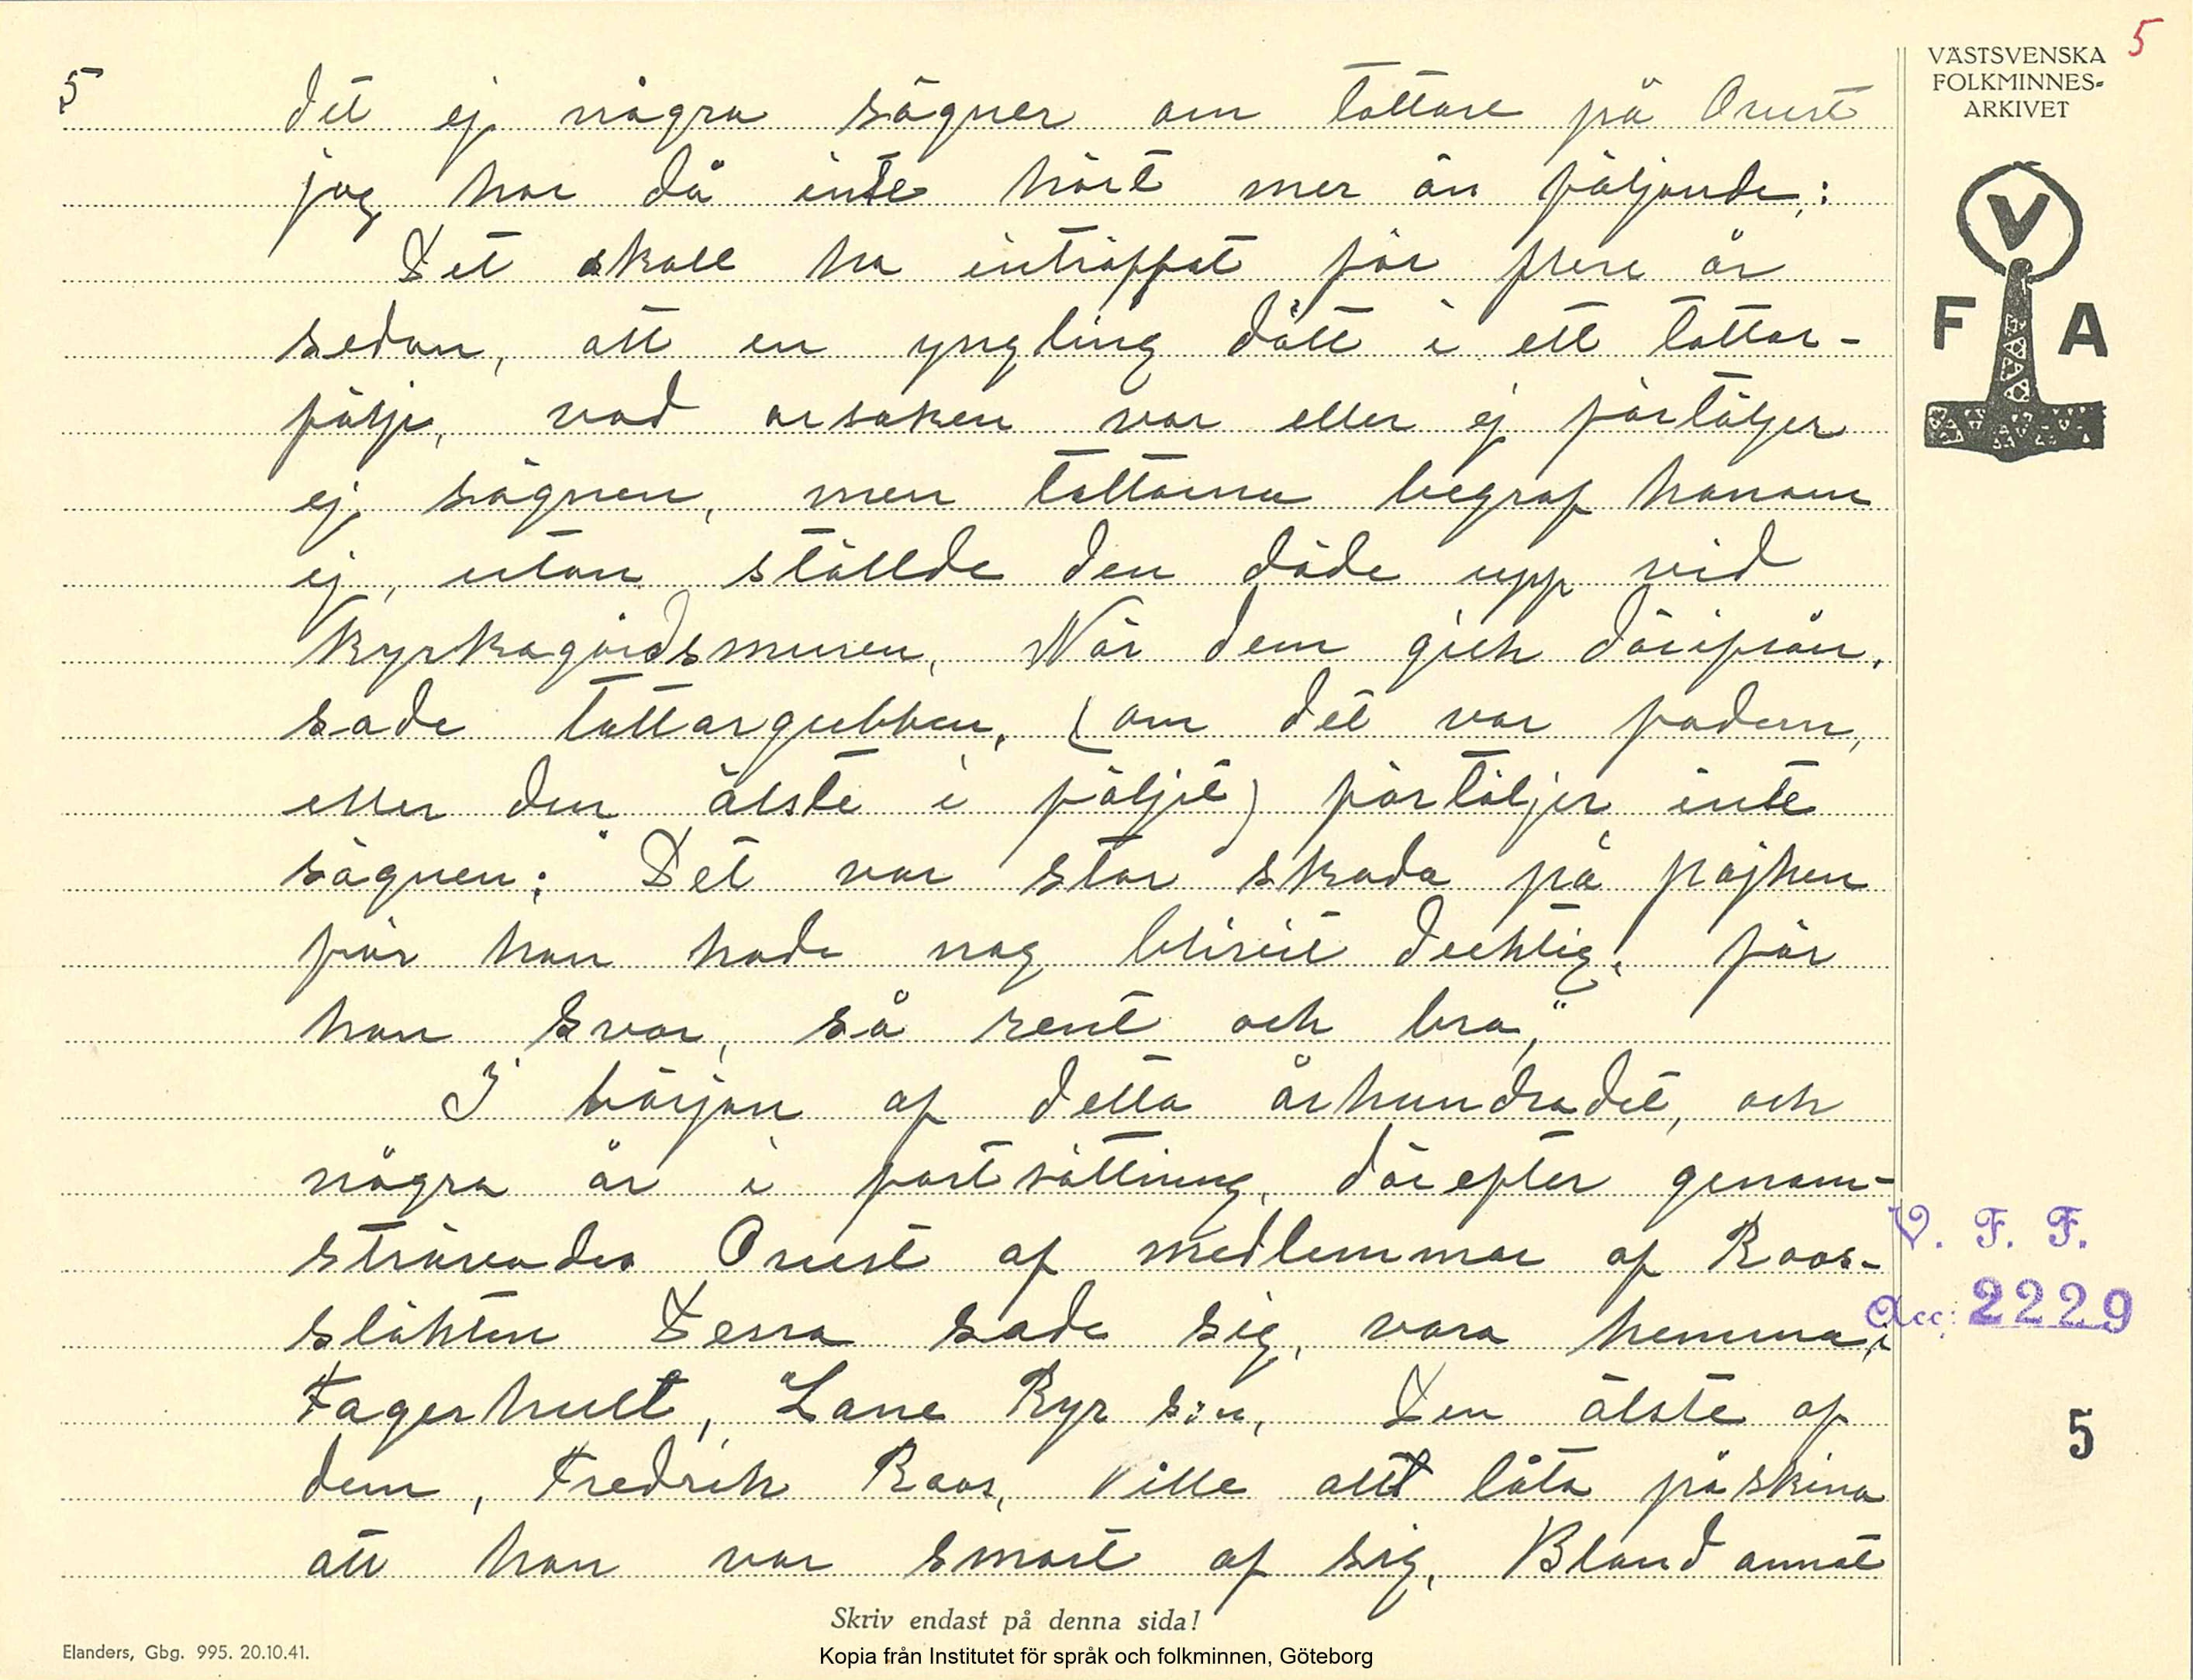 5
5
VÄSTSVENSKA
FOLKMINNES-
ARKIVET
V
F A
det ej några sägner om tattare på Orust
jag har då inte hört mer än följande;:
Det skall ha inträffat för flere år
sedan, att en yngling dött i ett tattar-
följe, vad orsaken var eller ej förtäljer
ej sägnen, men tattarna begrof honom
ej, utan ställde den döde upp vid
kyrkogårdsmuren, När dem gick därifrån,
sade tattargubben, (om det var fadern,
eller den älste i följet) förtäljer inte
sägnen: "Det var stor skada på pojken
för han hade nog blivit duchtig, för
han svor, så rent och bra,"
I början af detta århundradet, och
några år i fortsättning, därefter genom-
strövades Orust af medlemmar af Roos-
släkten Dessa sade sig, vara hemma i
Fagerhult, Lane Ryr s:n, Den älste af
dem, Fredrik Roos, ville allt låta påskina
att han var smart af sig, Bland annat
V. F. F.
Acc: 2229
5
Skriv endast på denna sida!
Elanders, Gbg. 995. 20.10.41.
Kopia från Institutet för språk och folkminnen, Göteborg